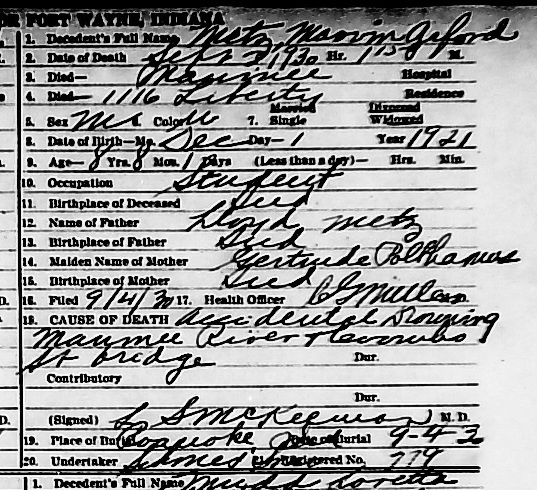 OR FORT WAYNE, INDIANA
1. Decedent's Full Name Metz, Marvin Geford
2. Date of Death Sept 2, 1930 Hr. 1 15 P M.
3. Died— Maumee Hospital
4. Died— 1116 Liberty Residence
Married Divorced
5. Sex M 6. Color W 7. Single Widowed
8. Date of Birth—Mo. Dec Day— 1 Year 1921
9. Age— 8 Yrs. 8 Mos. 1 Days (Less than a day)— Hrs. Min.
10. Occupation Student
11. Birthplace of Deceased Ind
12. Name of Father Lloyd Metz
13. Birthplace of Father Ind
14. Maiden Name of Mother Gertrude Polkhamus
15. Birthplace of Mother Ind
D. 16. Filed 9/4/30 17. Health Officer M.D.
18. CAUSE OF DEATH Accidental Drowning
Maumee River
St bridge Dur.
Contributory
Dur.
D. (Signed) L S McKeeman M. D.
19. Place of Burial Roanoke Ind Date of Burial 9-4-30
20. Undertaker James Registered No. 779
1. Decedent's Full Name Mudd Loretta